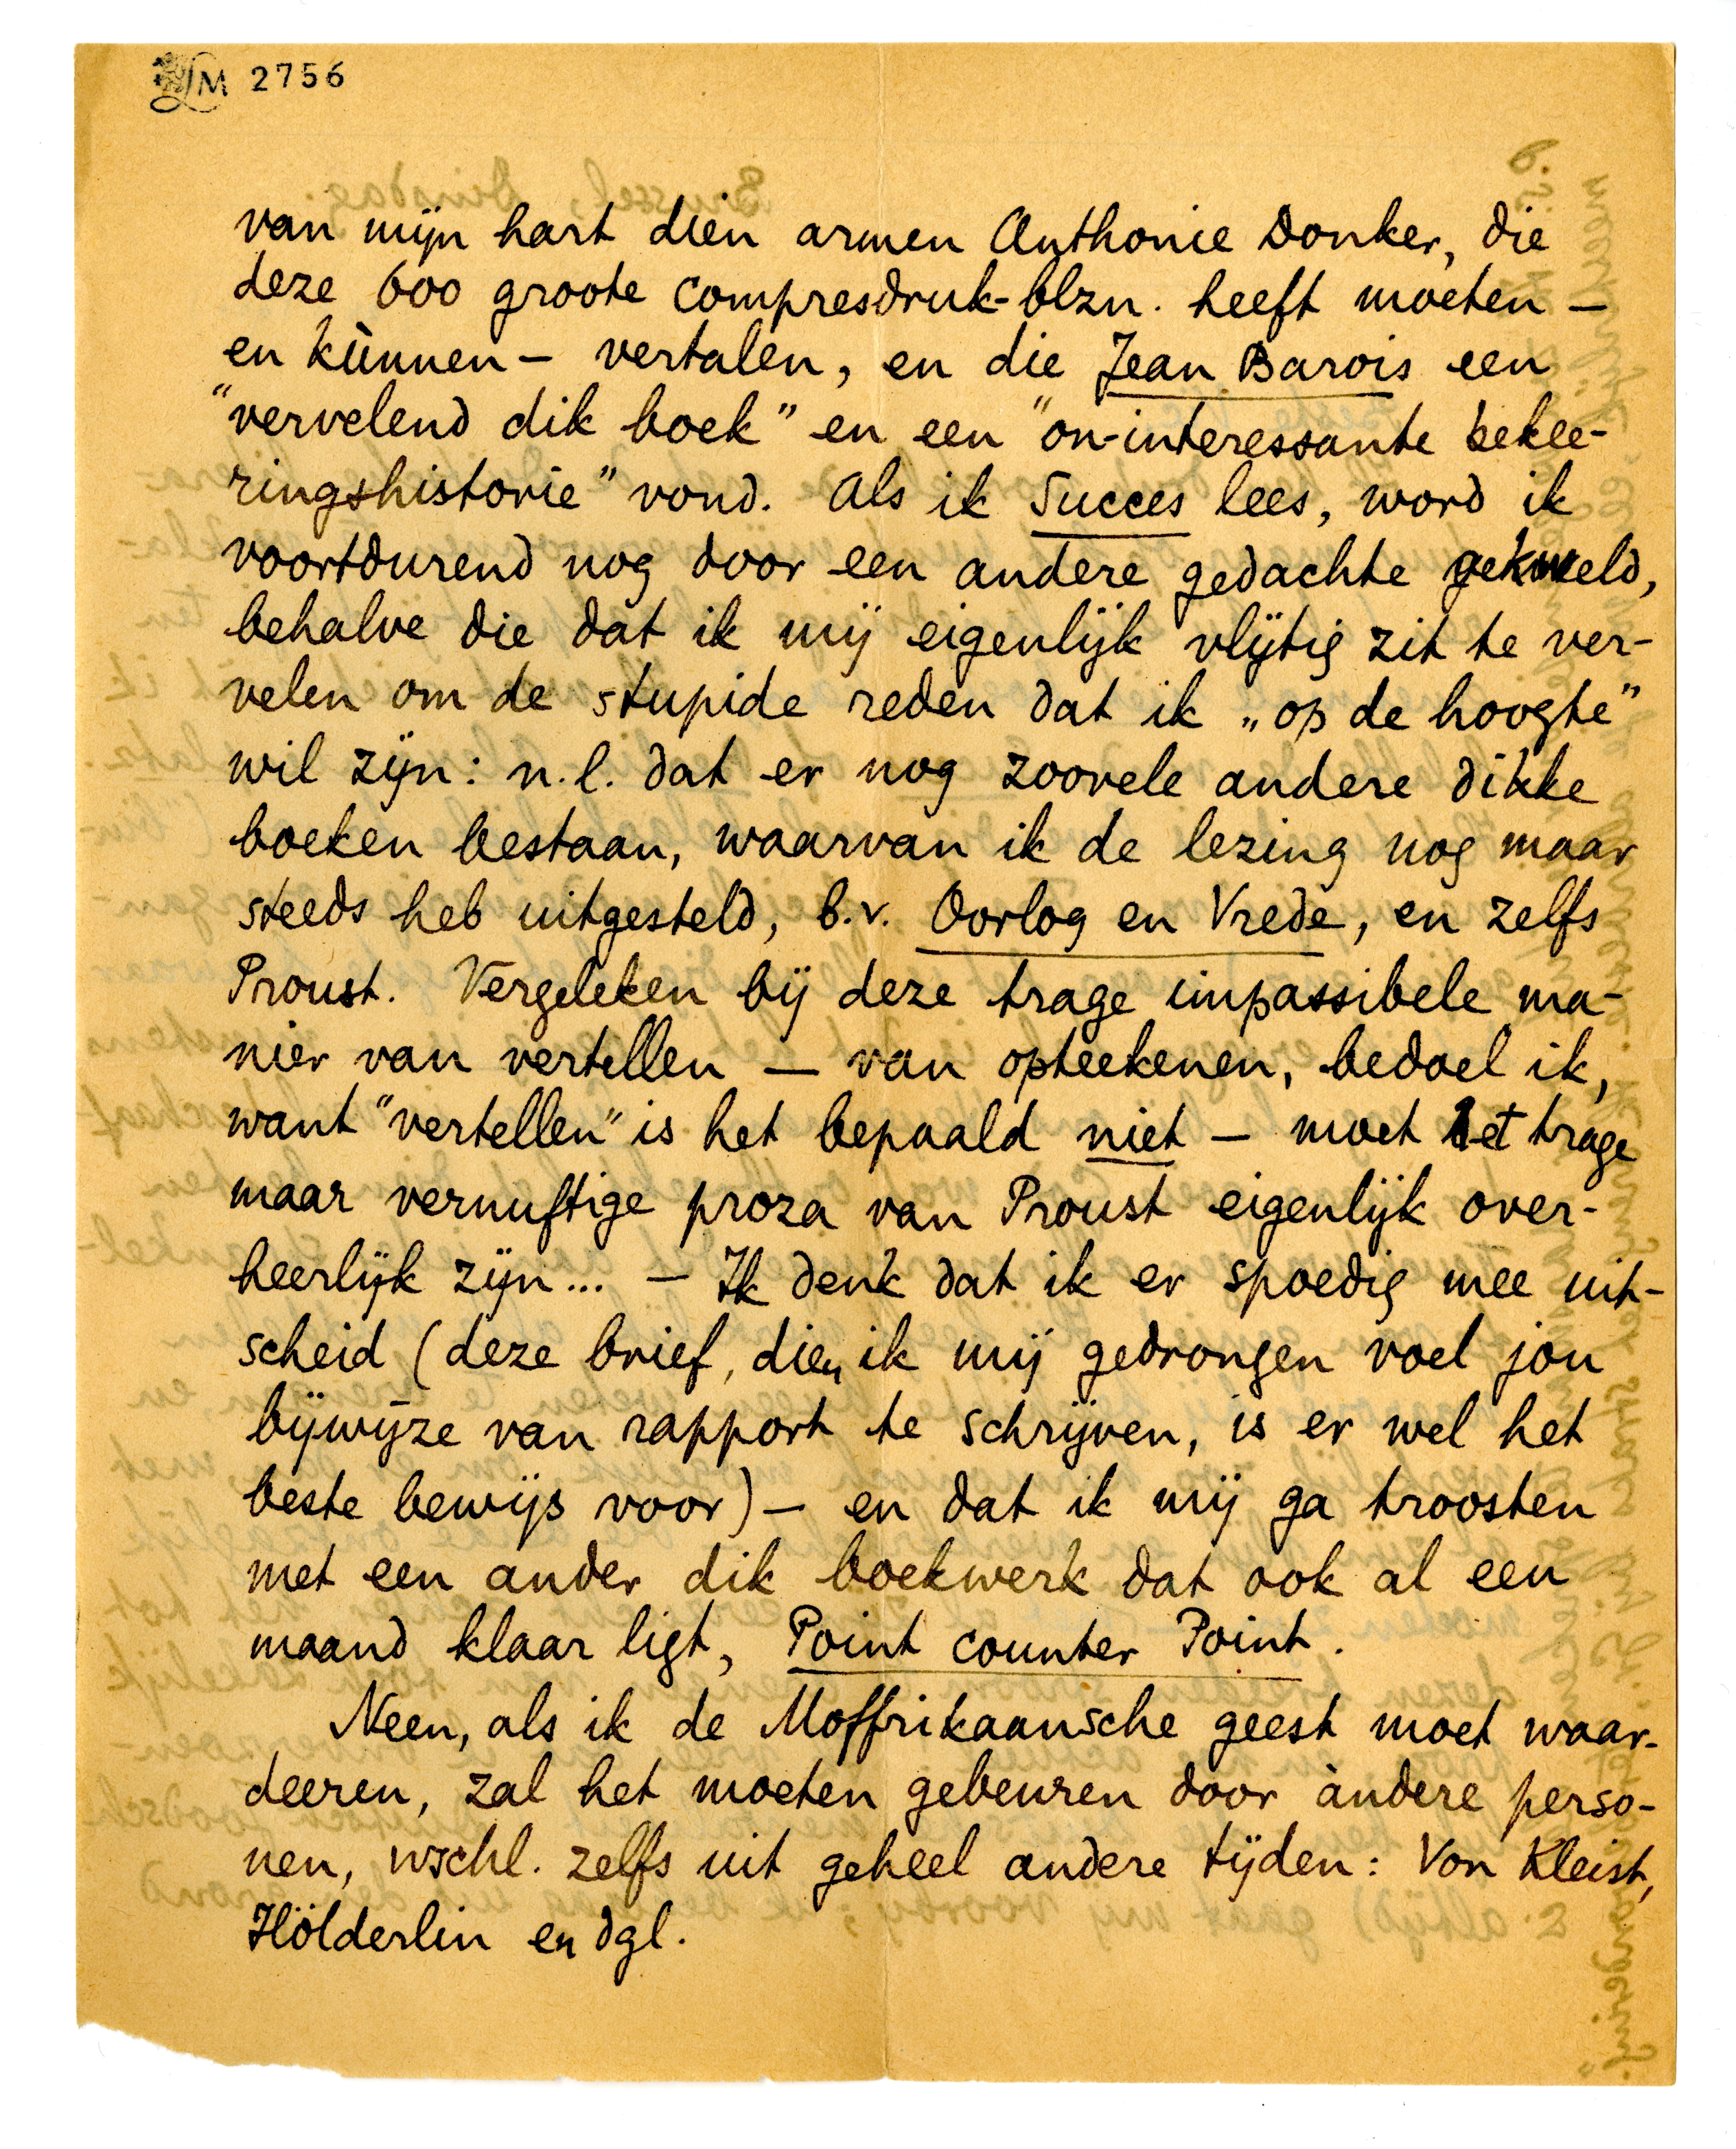 LM 2756
van mijn hart dien armen Anthonie Donker, die
deze 600 groote compresdruk-blzn. heeft moeten —
en kùnnen — vertalen, en die Jean Barois een
"vervelend dik boek" en een "on-interessante bekee-
ringshistorie" vond. Als ik Succes lees, word ik
voortdurend nog door een andere gedachte gekweld,
behalve die dat ik mij eigenlijk vlijtig zit te ver-
velen om de stupide reden dat ik „op de hoogte"
wil zijn: n.l. dat er nog zoovele andere dikke
boeken bestaan, waarvan ik de lezing nog maar
steeds heb uitgesteld, b.v. Oorlog en Vrede, en zelfs
Proust. Vergeleken bij deze trage impassibele ma-
nier van vertellen — van opteekenen, bedoel ik,
want "vertellen" is het bepaald niet — moet het trage
maar vernuftige proza van Proust eigenlijk over-
heerlijk zijn... — Ik denk dat ik er spoedig mee uit-
scheid (deze brief, dien ik mij gedrongen voel jou
bijwijze van rapport te schrijven, is er wel het
beste bewijs voor) — en dat ik mij ga troosten
met een ander dik boekwerk dat ook al een
maand klaar ligt, Point counter Point.
Neen, als ik de Moffrikaansche geest moet waar-
deeren, zal het moeten gebeuren door àndere perso-
nen, wschl. zelfs uit geheel andere tijden: Von Kleist,
Hölderlin en dgl.